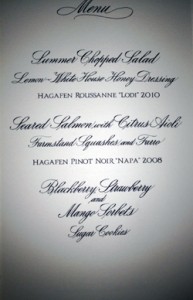 Menu
Summer Chopped Salad
Lemon-White House Honey Dressing
Hagafen Roussanne "Lodi" 2010
Seared Salmon with Citrus Aioli
Farmstand Squashes and Farro
Hagafen Pinot Noir "Napa" 2008
Blackberry, Strawberry
and
Mango Sorbets
Sugar Cookies